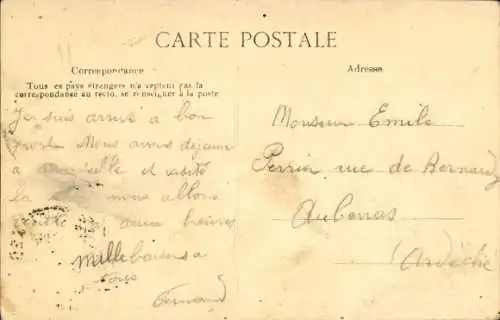 CARTE POSTALE
Correspondance
Tous es pays étrangers n'a ceptent pas la
correspondanse au recto, se renseigner à la poste
Je suis arrivé a bon
port Nous avons déjeuné
a et visité
la nous allons
deux heures
Mille baisers a
tous
Fernand
Adresse
Monsieur Emile
Perrin rue de Bernardy
Aubenas
Ardèche